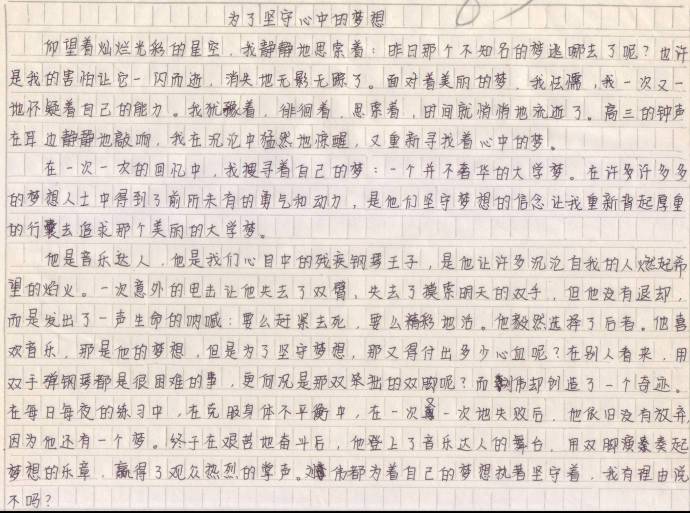 为了坚守心中的梦想
仰望着灿烂光彩的星空，我静静地思索着：昨日那个不知名的梦逃哪去了呢？也许
是我的害怕让它一闪而逝，消失地无影无踪了。面对着美丽的梦，我怯懦，我一次又一
地怀疑着自己的能力。我犹豫着，徘徊着，思索着，时间就悄悄地流逝了。高三的钟声
在耳边静静地敲响，我在沉沦中猛然地惊醒，又重新寻找着心中的梦。
在一次一次的回忆中，我搜寻着自己的梦：一个并不奢华的大学梦。在许多许多多
的梦想人士中得到了前所未有的勇气和动力，是他们坚守梦想的信念让我重新背起厚重
的行囊去追求那个美丽的大学梦。
他是音乐达人，他是我们心目中的残疾钢琴王子，是他让许多沉沦自我的人燃起希
望的焰火。一次意外的电击让他失去了双臂，失去了摸索明天的双手，但他没有退却，
而是发出了一声生命的呐喊：要么赶紧去死，要么精彩地活。他毅然选择了后者。他喜
欢音乐，那是他的梦想，但是为了坚守梦想，那又得付出多少心血呢？在别人看来，用
双手弹钢琴都是很困难的事，更何况是那双笨拙的双脚呢？而伟却创造了一个奇迹。
在每日每夜的练习中，在克服身体不平衡中，在一次又一次地失败后，他依旧没有放弃，
因为他还有一个梦。终于在艰苦地奋斗后，他登上了音乐达人的舞台，用双脚演奏起
梦想的乐章，赢得了观众热烈的掌声。刘伟都为着自己的梦想执著坚守着，我有理由说
不吗？